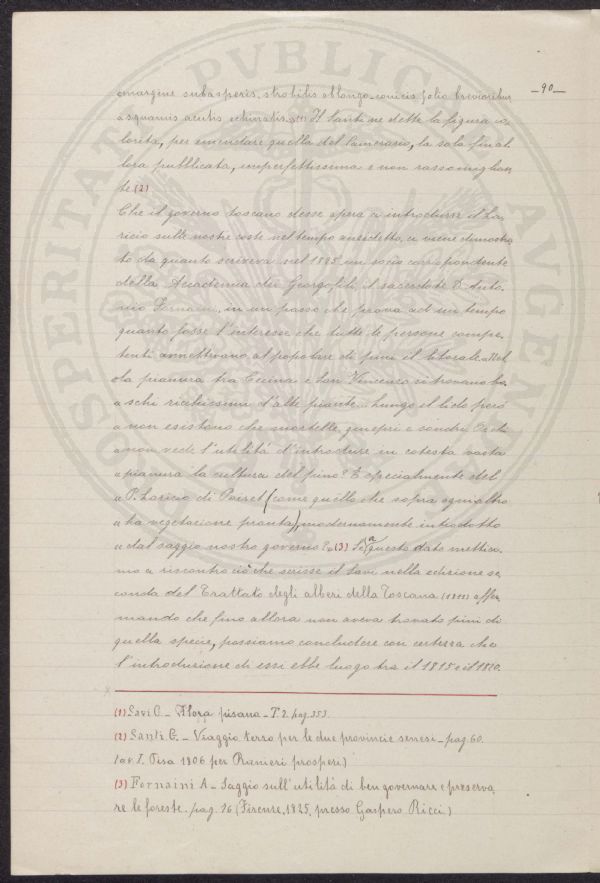 —90—
«margine subasperis, strobilis oblongo-conicis folio brevioribus
«squamis acutis echinatis.»(1) Il Santi ne dette la figura co
lorita, per emendare quella del Camerario, la sola fin al
lora pubblicata, imperfettissima e non rassomiglian
te.(2)
Che il governo toscano desse opera a introdurre il La,
ricio sulle nostre coste nel tempo anzidetto, ci viene dimostra
to da quanto scriveva nel 1825 un socio corrispondente
della Accademia dei Georgofili, il sacerdote D. Anto,
nio Fornaini, in un passo che prova ad un tempo
quanto fosse l'interesse che tutte le persone compe,
tenti annettevano al popolare di pini il litorale. «Nel
«la pianura tra Cecina e San Vincenzo si trovano bo
«schi ricchissimi d'alte piante... Lungo il lido però
«non esistono che mortelle, ginepri e sondri. E chi
«non vede l'utilità d'introdurre in cotesta vasta
«pianura la cultura del pino? E specialmente del
«P. Laricio di Poiret (come quello che sopra ogni altro
«ha vegetazione pronta), modernamente introdotto
«dal saggio nostro governo?»(3) Se a questo dato mettia,
mo a riscontro ciò che scrisse il Savi nella edizione se
conda del Trattato degli alberi della Toscana (1811) affer
mando che fino allora non aveva trovato pini di
quella specie, possiamo concludere con certezza che
l'introduzione di essi ebbe luogo tra il 1815 e il 1820.
(1) Savi G. — Flora pisana — T. 2. pag. 353.
(2) Santi G. — Viaggio terzo per le due provincie senesi — pag 60.
tav. I. Pisa 1806 per Ranieri prosperi)
(3) Fornaini A — Saggio sull'utilità di ben governare e preserva,
re le foreste. pag. 26 (Firenze, 1825, presso Gaspero Ricci)
PROSPERITATI PVBLICAE AVGENDAE